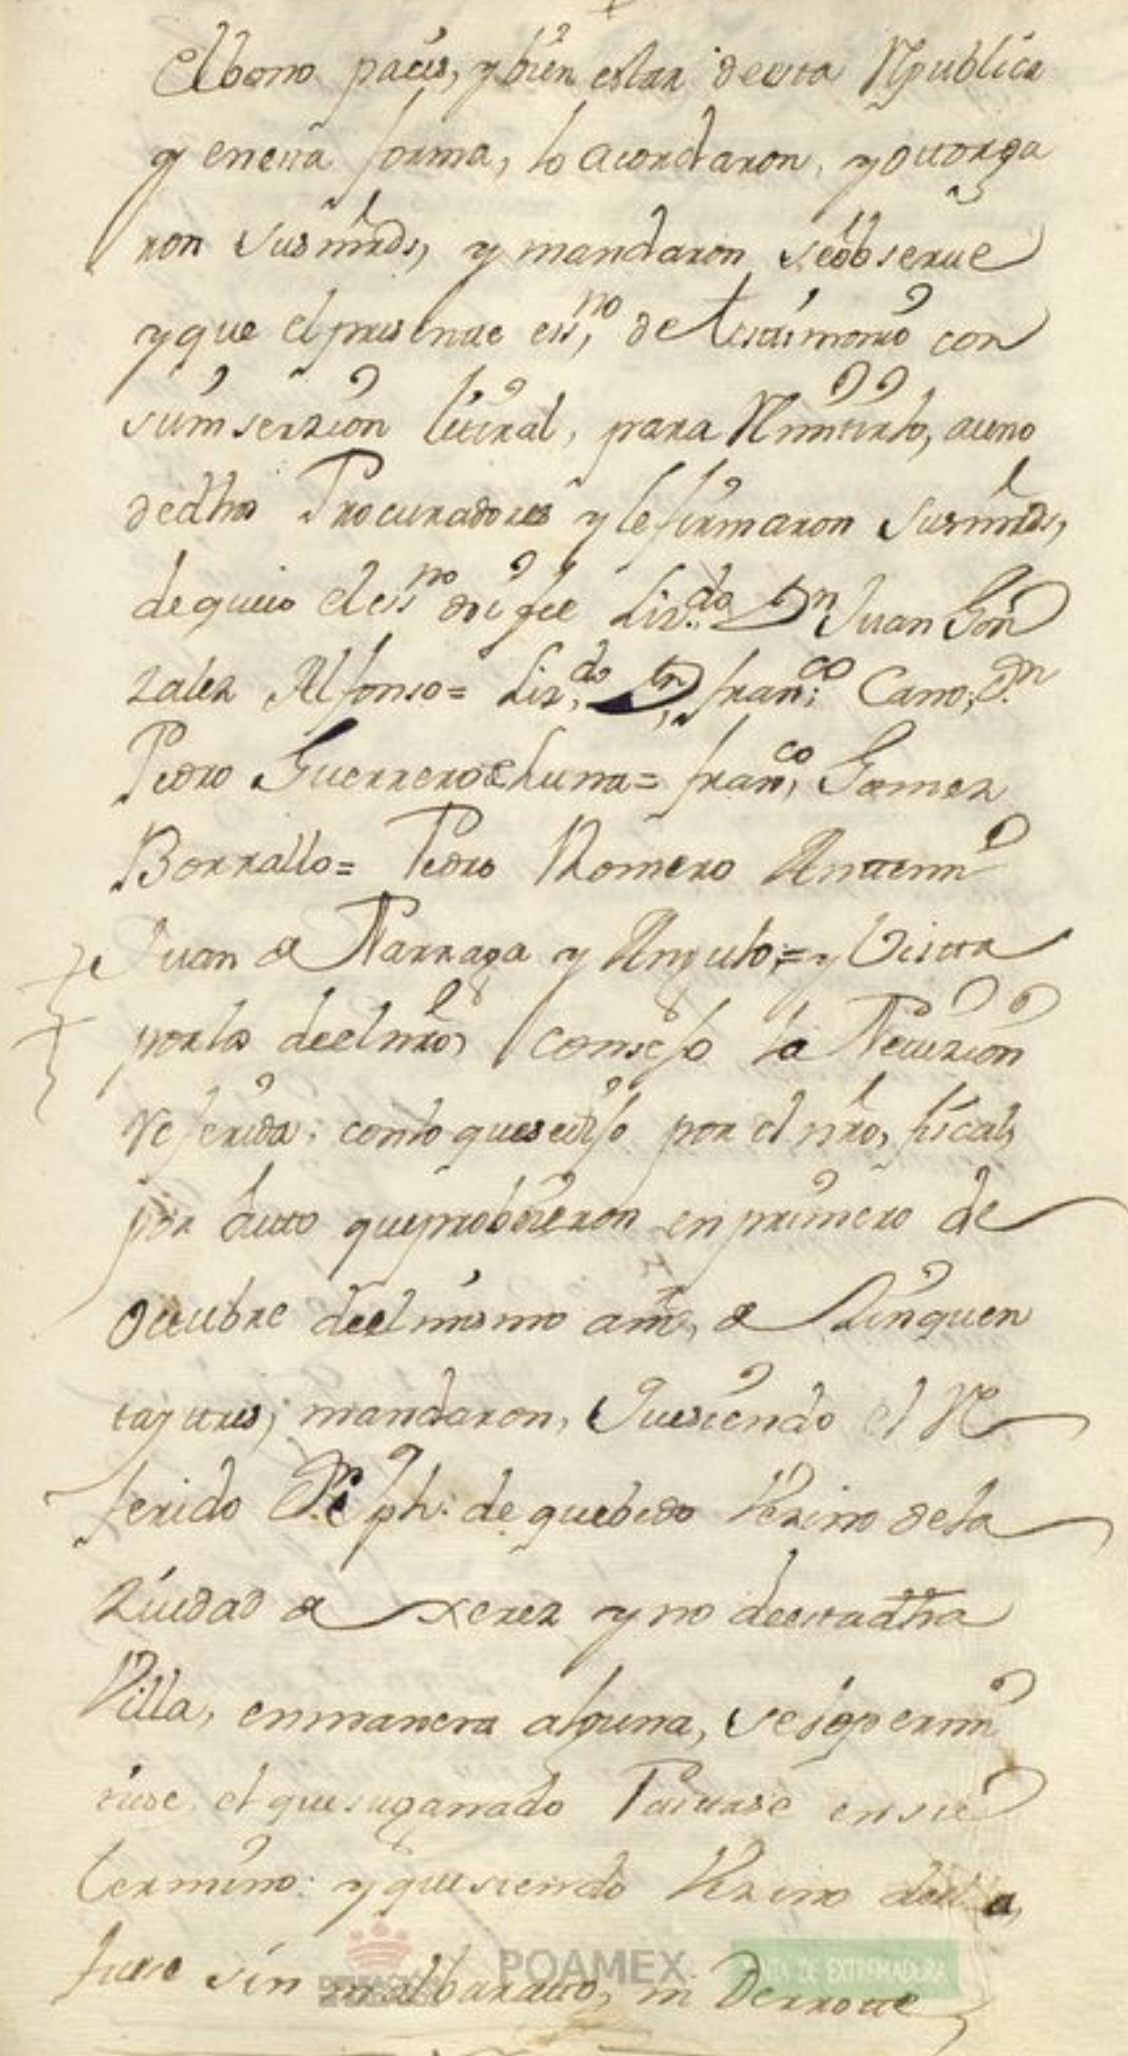 El bono paçis, y bien estar de esta Republica
y en esta forma, lo acordaron, y otorga
ron sus mrds, y mandaron se observe
y que el presente essno, de testimonio con
su insersion literal, para Remitirlo, a uno
de dhos Procuradores y le firmaron sus mrds,
de que io el essno doi fee Lizdo Dn Juan Gon
zalez Alfonso = Lizdo Dn Franco Cano; Dn
Pedro Guerrero de Luna = Franco Gomez
Borrallo = Pedro Romero Antemi
Juan de Narraga y Angulo = y Vista
por los de el nro Consejo la Petizion
Referida: con lo que se dijo por el nro, fiscal,
por auto que probeieron en primero de
Octubre de el mismo año, de Zinquen
ta y tres; mandaron, Que siendo el Re
ferido Dn Jph: de quebedo Vezino de la
Ziudad de Xerez y no de esta dha
Villa, en manera alguna, se le permi
tiese, el que su ganado Pastase en su
termino: y que siendo Vezino de ella,
fuese sin malbarato, ni Derrote
POAMEX
JUNTA DE EXTREMADURA